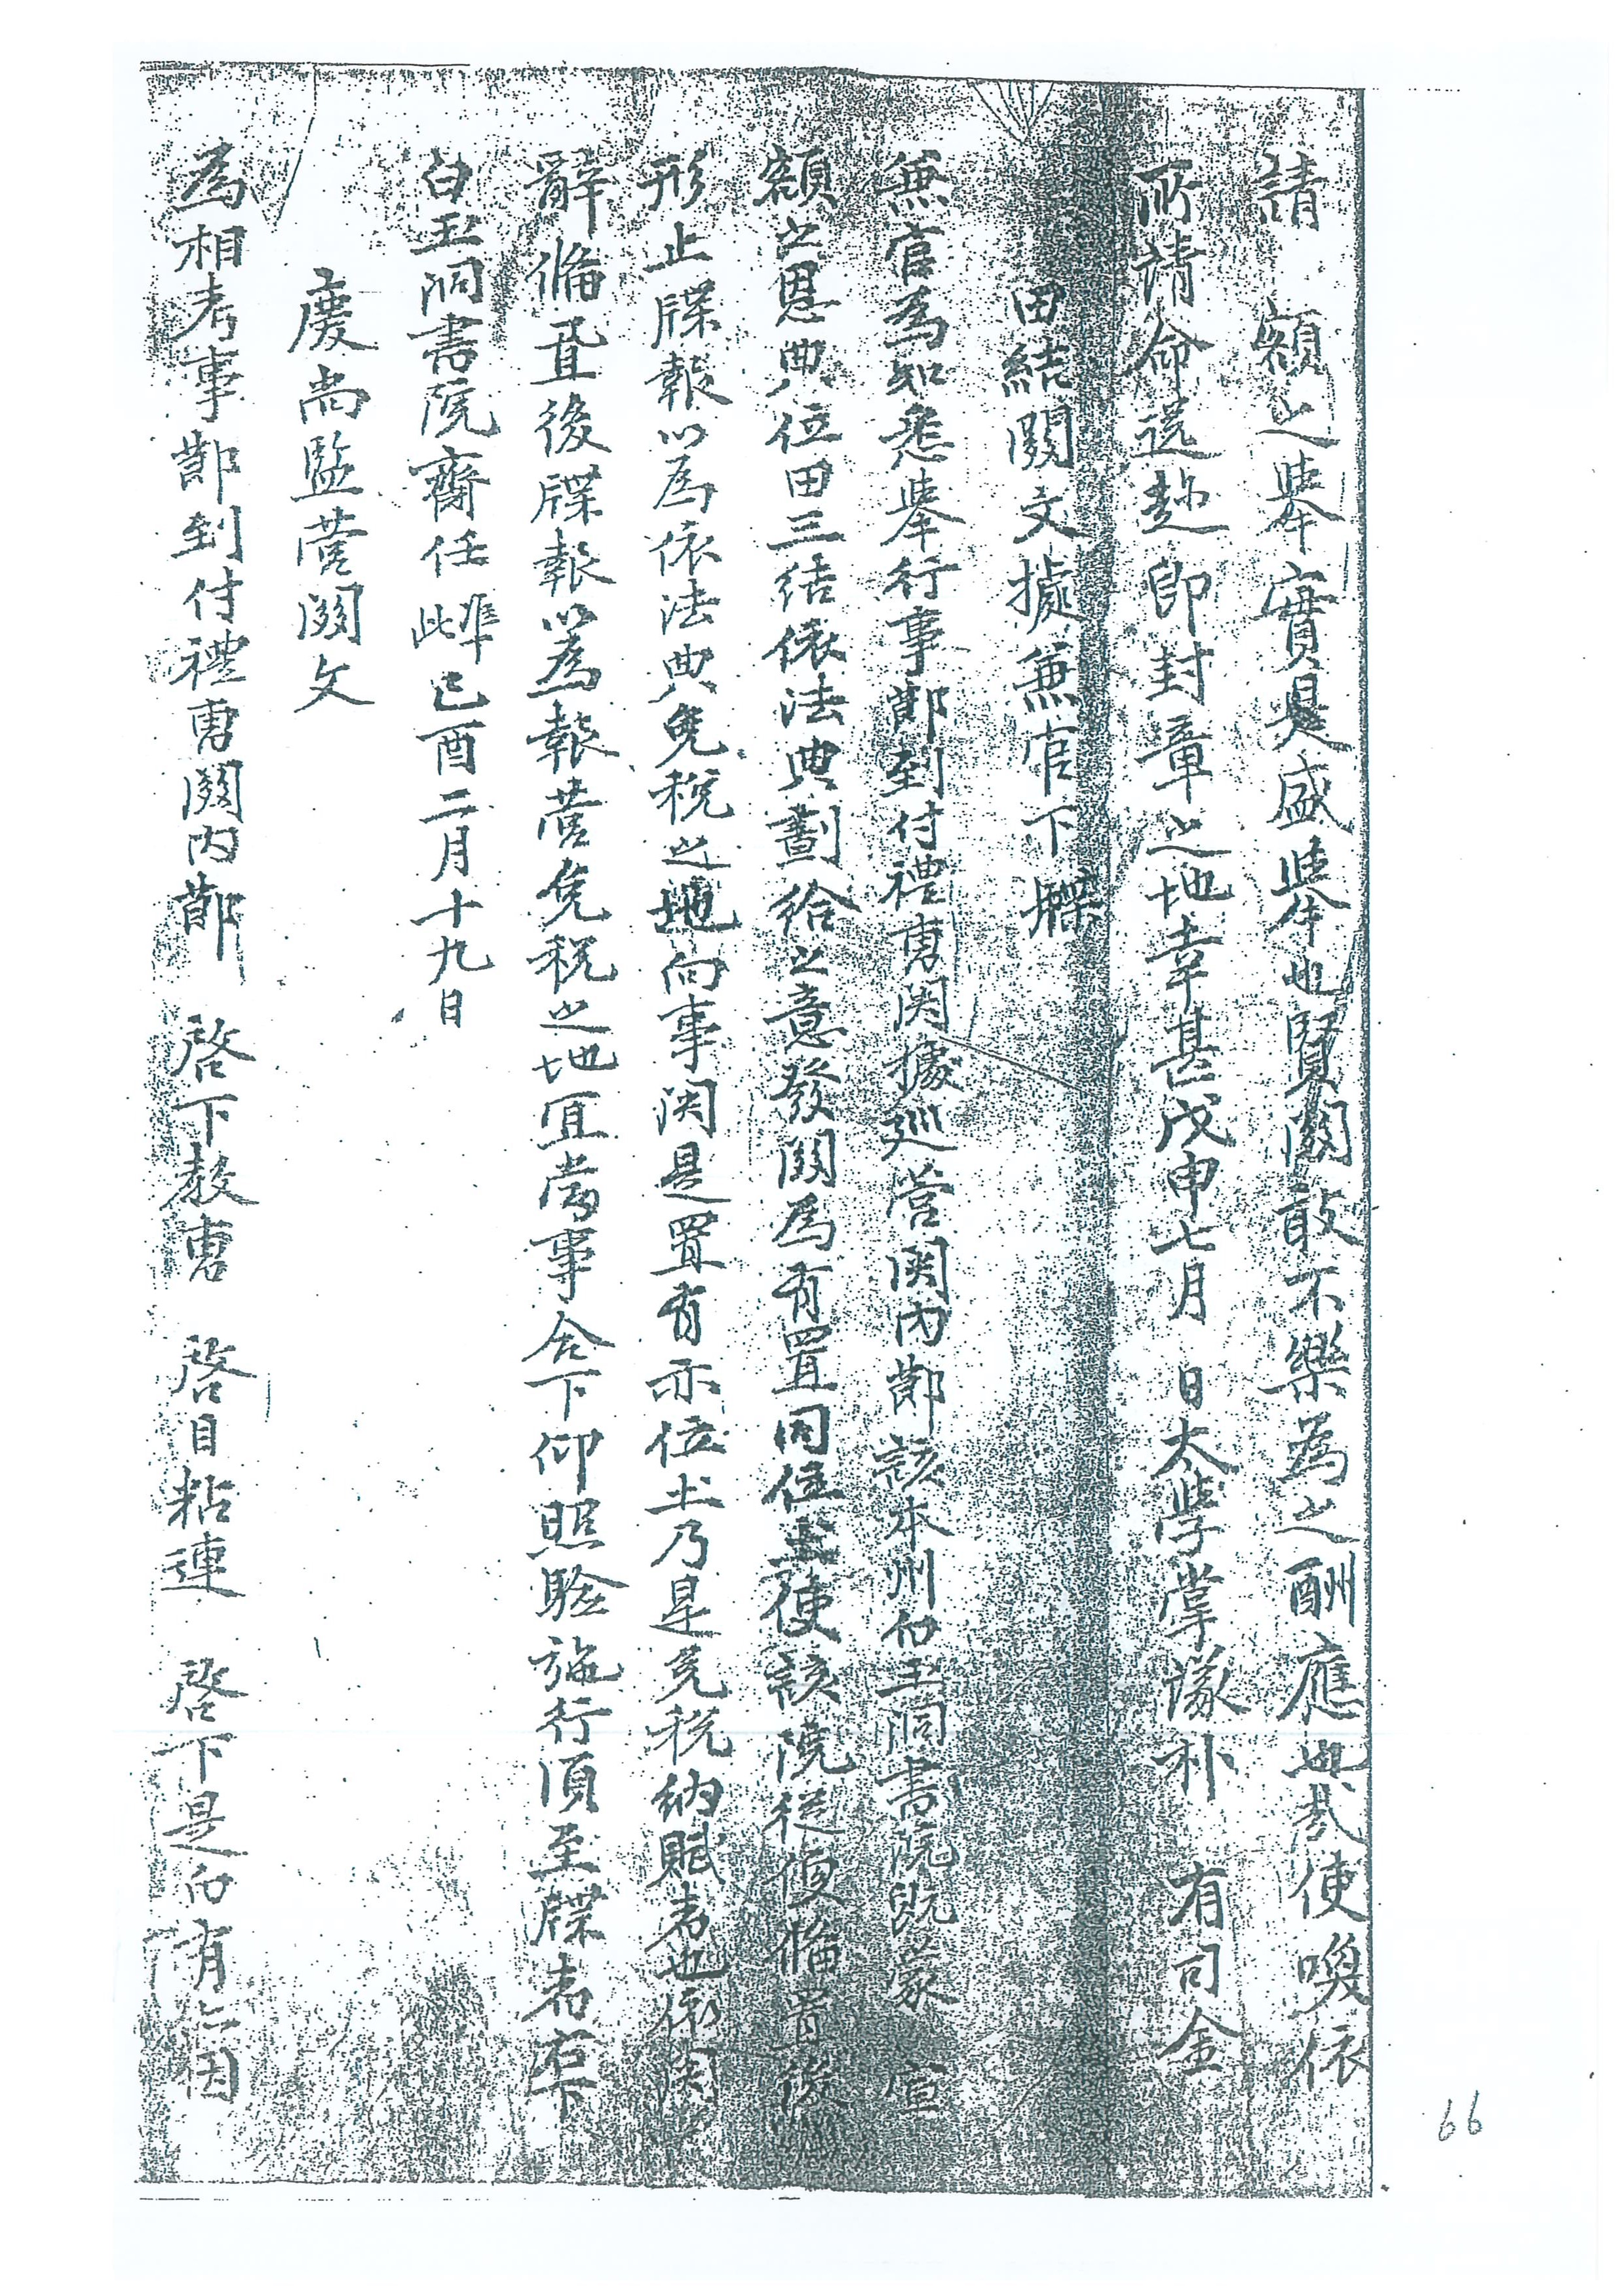 請 額之擧實是盛擧也賢關敢不樂爲之酬應
使喚依
所請命送趂卽封章之地幸甚戊申七月 日太學掌議朴 有司金
田結關文據兼官下牒
兼官爲知悉擧行事節到付禮曹関據巡營関內節該本州白玉洞書院旣蒙 宣
額之恩典位田三結依法典劃給之意發關爲有置同位土使該院從便備置後
形止牒報以爲依法典免稅之地向事関是置有亦位土乃是免稅納賦者也依関
辭備置後牒報以爲報營免稅之地宜當事合下仰照驗施行須至牒者右下
白玉洞書院齋任 準此 己酉二月十九日
慶尙監營關文
爲相考事節到付禮曹關內節 啓下敎曹 啓目粘連 啓下是白有亦因
66